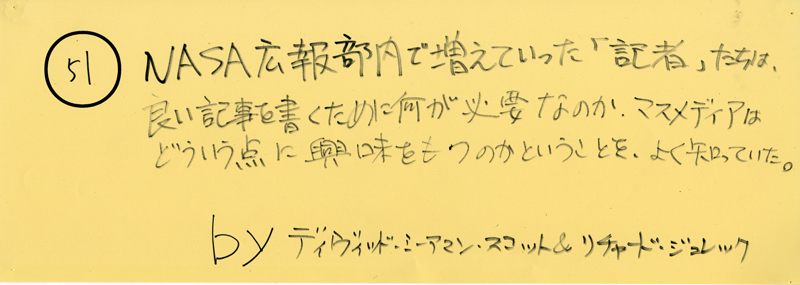 51
NASA広報部内で増えていった「記者」たちは、
良い記事を書くために何が必要なのか、マスメディアは
どういう点に興味をもつのかということを、よく知っていた。
by ディヴィッド・ミーアマン・スコット&リチャード・ジュレック